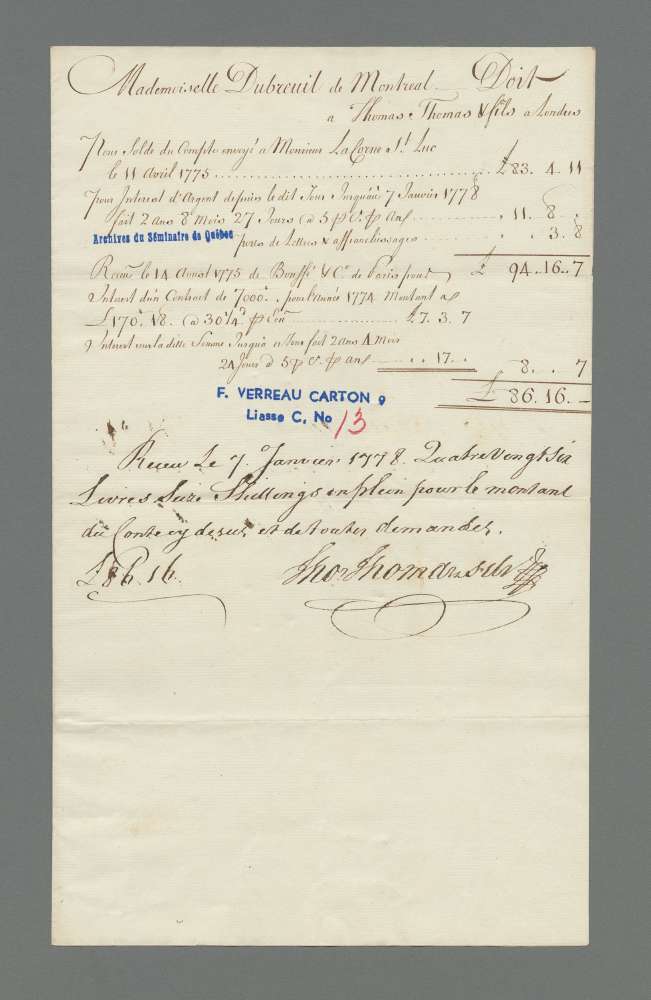 Mademoiselle Dubreuil de Montreal Doit
a Thomas Thomas & fils a Londres
Pour Solde du Compte envoyé a Monsieur La Corne St Luc
le 11 Avril 1775 ........ £83. 4. 11
pour Interest d'Argent depuis le dit Jour Jusqu'au 7 Janvier 1778
fait 2 ans 8 Mois 27 Jours @ 5 p C. p An ........ 11. 8. .
Archives du Séminaire de Québec
portes de Lettres & affranchissages ........ 3. 8
£ 94..16..7
Receu le 14 Aoust 1775 de Bouffé & Ce. de Paris pour
Interest d'un Contract de 7000 pour l'année 1774 Montant a
£170. 18. @ 30 1/4d p Ecu ........ £7. 3. 7
Interest sur la ditte Somme Jusqu'a ce Jour fait 2 ans 4 Mois
24 Jours @ 5 p C. p an ........ 17. .
8. . 7
£ 86.16. –
F. VERREAU CARTON 9
Liasse C, No 13
Receu Le 7 Janvier 1778. Quatre Vengt Six
Livres Seize Shillings en plein pour le montant
du Conte cy desus et de toutes demandes.
£86.16. Thos Thomas & fils